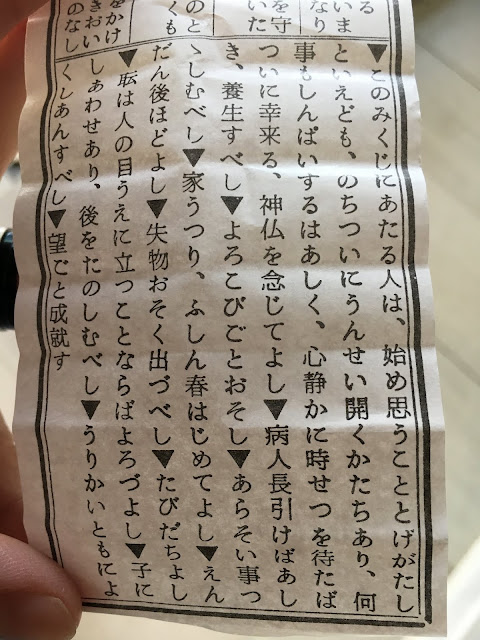 る
いま
なり
を守
いた
のと
くも
をかけ
きおい
のなし
▼このみくじにあたる人は、始め思うこととげがたし
といえども、のちついにうんせい開くかたちあり、何
事もしんぱいするはあしく、心静かに時せつを待たば
ついに幸来る、神仏を念じてよし▼病人長引けばあし
き、養生すべし▼よろこびごとおそし▼あらそい事つ
ゝしむべし▼家うつり、ふしん春はじめてよし▼えん
だん後ほどよし▼失物おそく出づべし▼たびだちよし
▼耺は人の目うえに立つことならばよろづよし▼子に
しあわせあり、後をたのしむべし▼うりかいともによ
くしあんすべし▼望ごと成就す